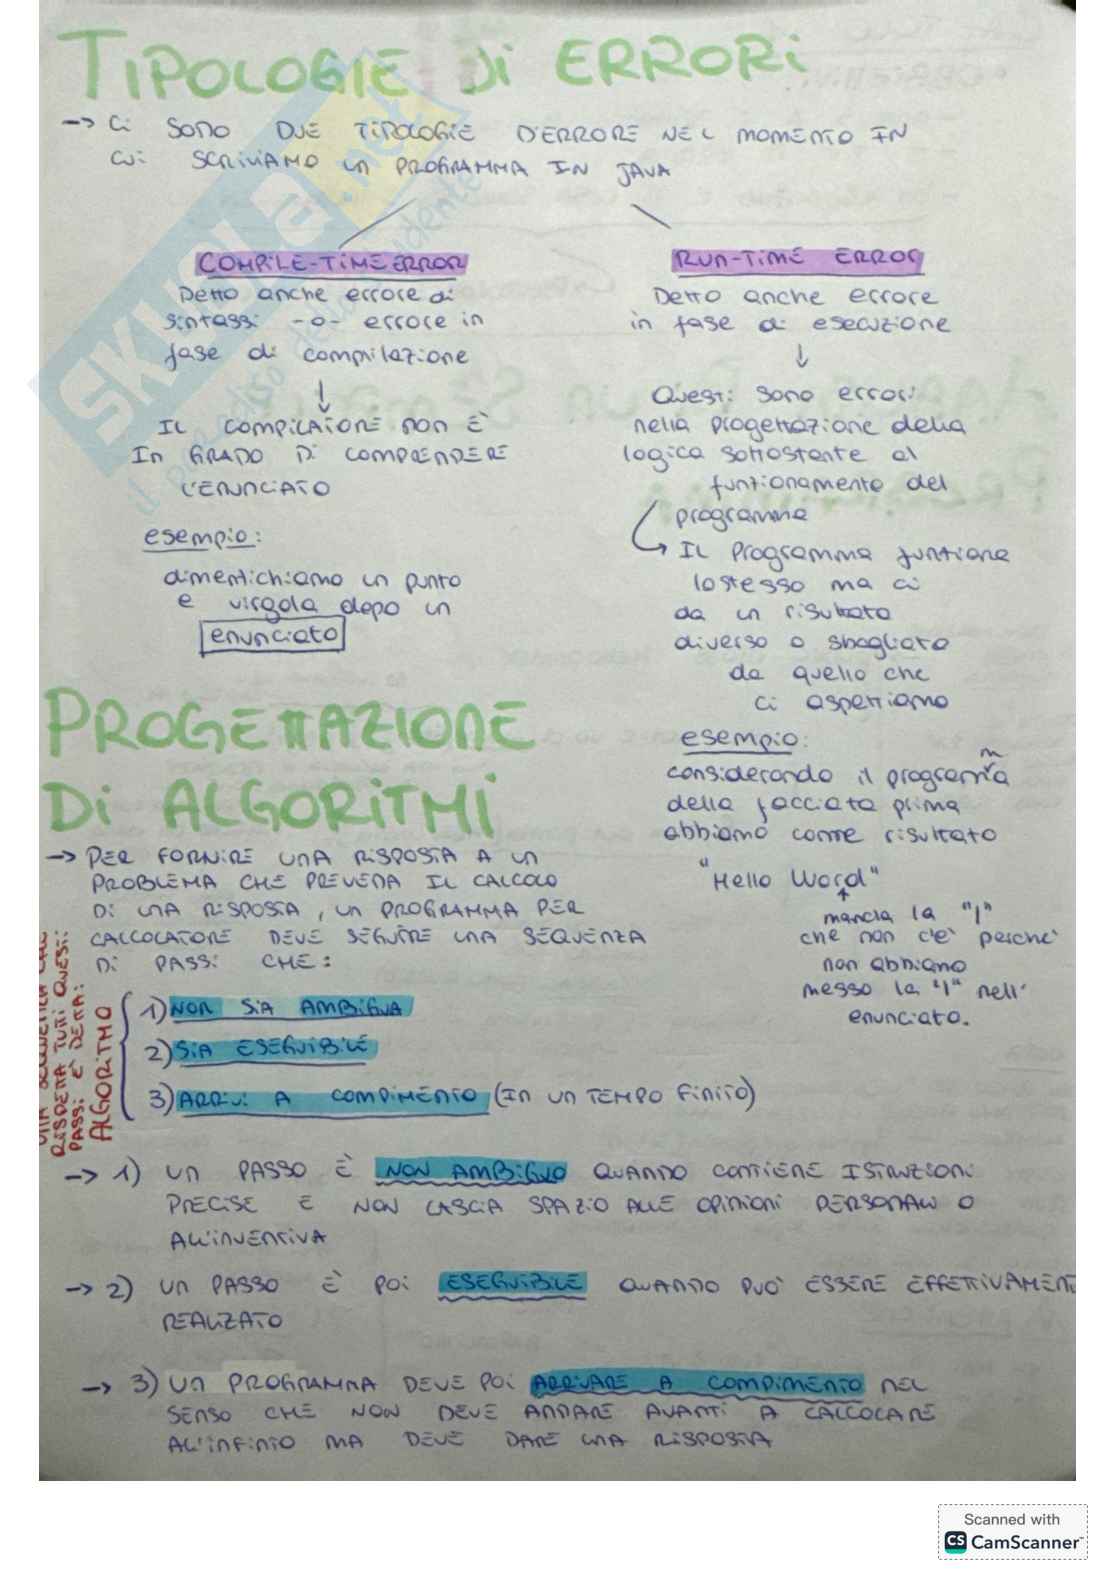 TIPOLOGIE Di ERRORi
-> Ci SONO DUE TiPOLOGIE D'ERRORE NEL MOMENTO IN
CUi SCRIVIAMO UN PROGRAMMA IN JAVA
COMPILE-TiME ERROR
Detto anche errore di
sintassi -o- errore in
fase di compilazione
↓
IL COMPILATORE NON È
IN GRADO Di COMPRENDERE
L'ENUNCIATO
esempio:
dimentichiamo un punto
e virgola dopo un
enunciato
RUN-TiME ERROR
Detto anche errore
in fase di esecuzione
↓
Questi sono errori
nella progettazione della
logica sottostante al
funzionamento del
programma
Il programma funziona
lo stesso ma ci
da un risultato
diverso o sbagliato
da quello che
ci aspettiamo
esempio:
considerando il programma
della facciata prima
abbiamo come risultato
"Hello Word"
↑
mancia la "l"
che non c'è perche'
non abbiamo
messo la "l" nell'
enunciato.
PROGETTAZIONE
Di ALGORiTMi
-> PER FORNiRE UNA RiSPOSTA A UN
PROBLEMA CHE PREVEDA IL CALCOLO
Di UNA RiSPOSTA, UN PROGRAMMA PER
CALCOLATORE DEVE SEGUiRE UNA SEQUENZA
Di PASSi CHE:
RISPETTA TUTTI QUESTI
PASSi È DETTA:
ALGORiTMO
1) NON SiA AMBiGUA
2) SiA ESEGUiBiLE
3) ARRiVi A COMPIMENTO (IN UN TEMPO FiNiTO)
-> 1) UN PASSO È NON AMBiGUO QUANDO CONTIENE ISTRUZIONi
PRECiSE E NON LASCiA SPAZiO ALLE OPINIONi PERSONALi O
ALL'INVENTIVA
-> 2) UN PASSO È POi ESEGUiBiLE QUANDO PUO' ESSERE EFFETTiVAMENT
REALIZZATO
-> 3) UN PROGRAMMA DEVE POi ARRiVARE A COMPIMENTO NEL
SENSO CHE NON DEVE ANDARE AVANTi A CALCOLARE
ALL'INFINITO MA DEVE DARE UNA RiSPOSTA
SKUOLA.net
Scanned with
CS CamScanner